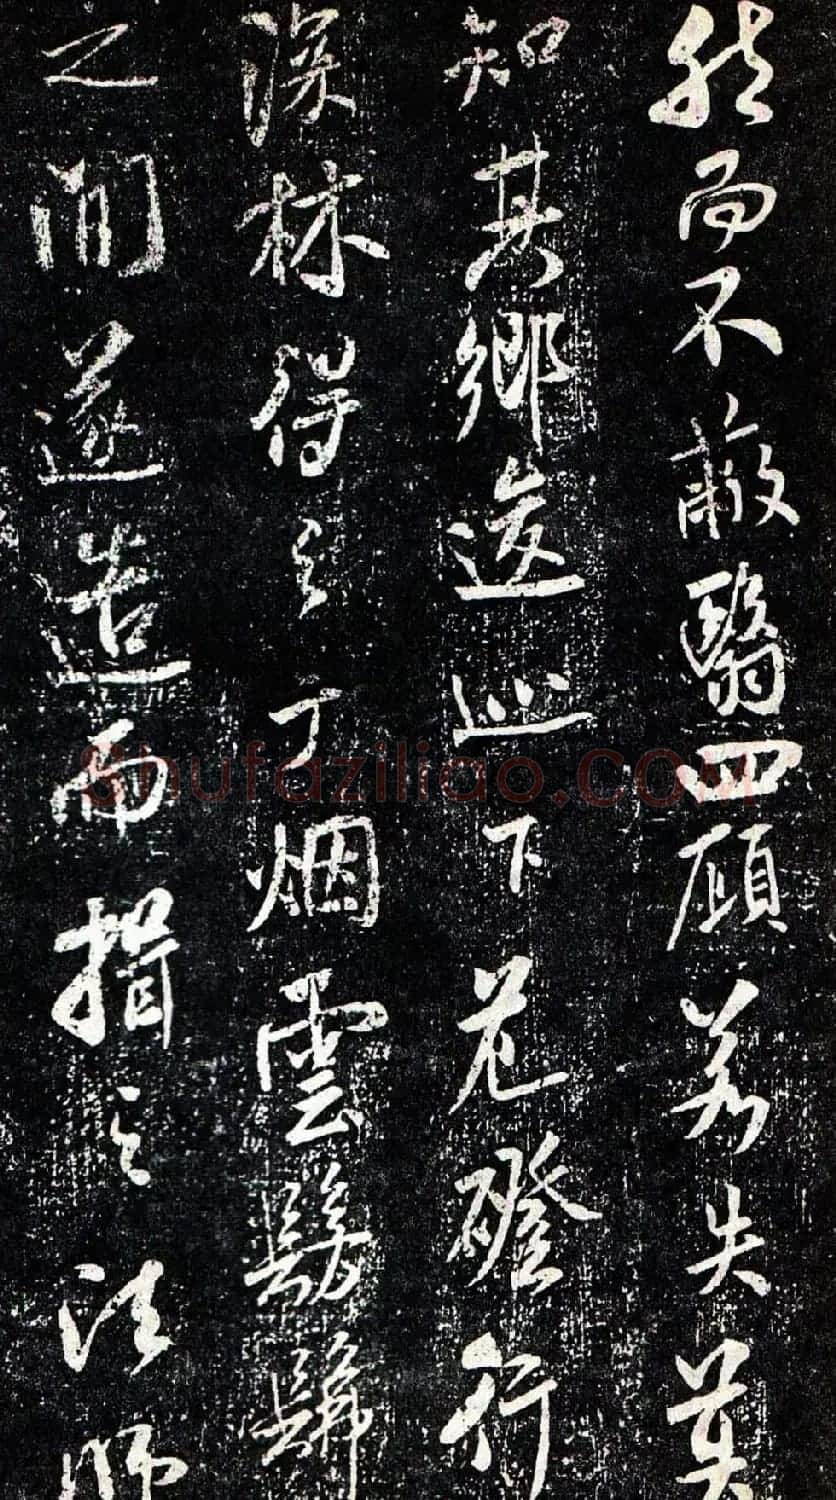 然而不蔽翳四顧若失莫
知其鄉逡巡下危磴行
深林得之于烟雲髣髴
之間遂造而揖之法師
Shufaziliao.COM